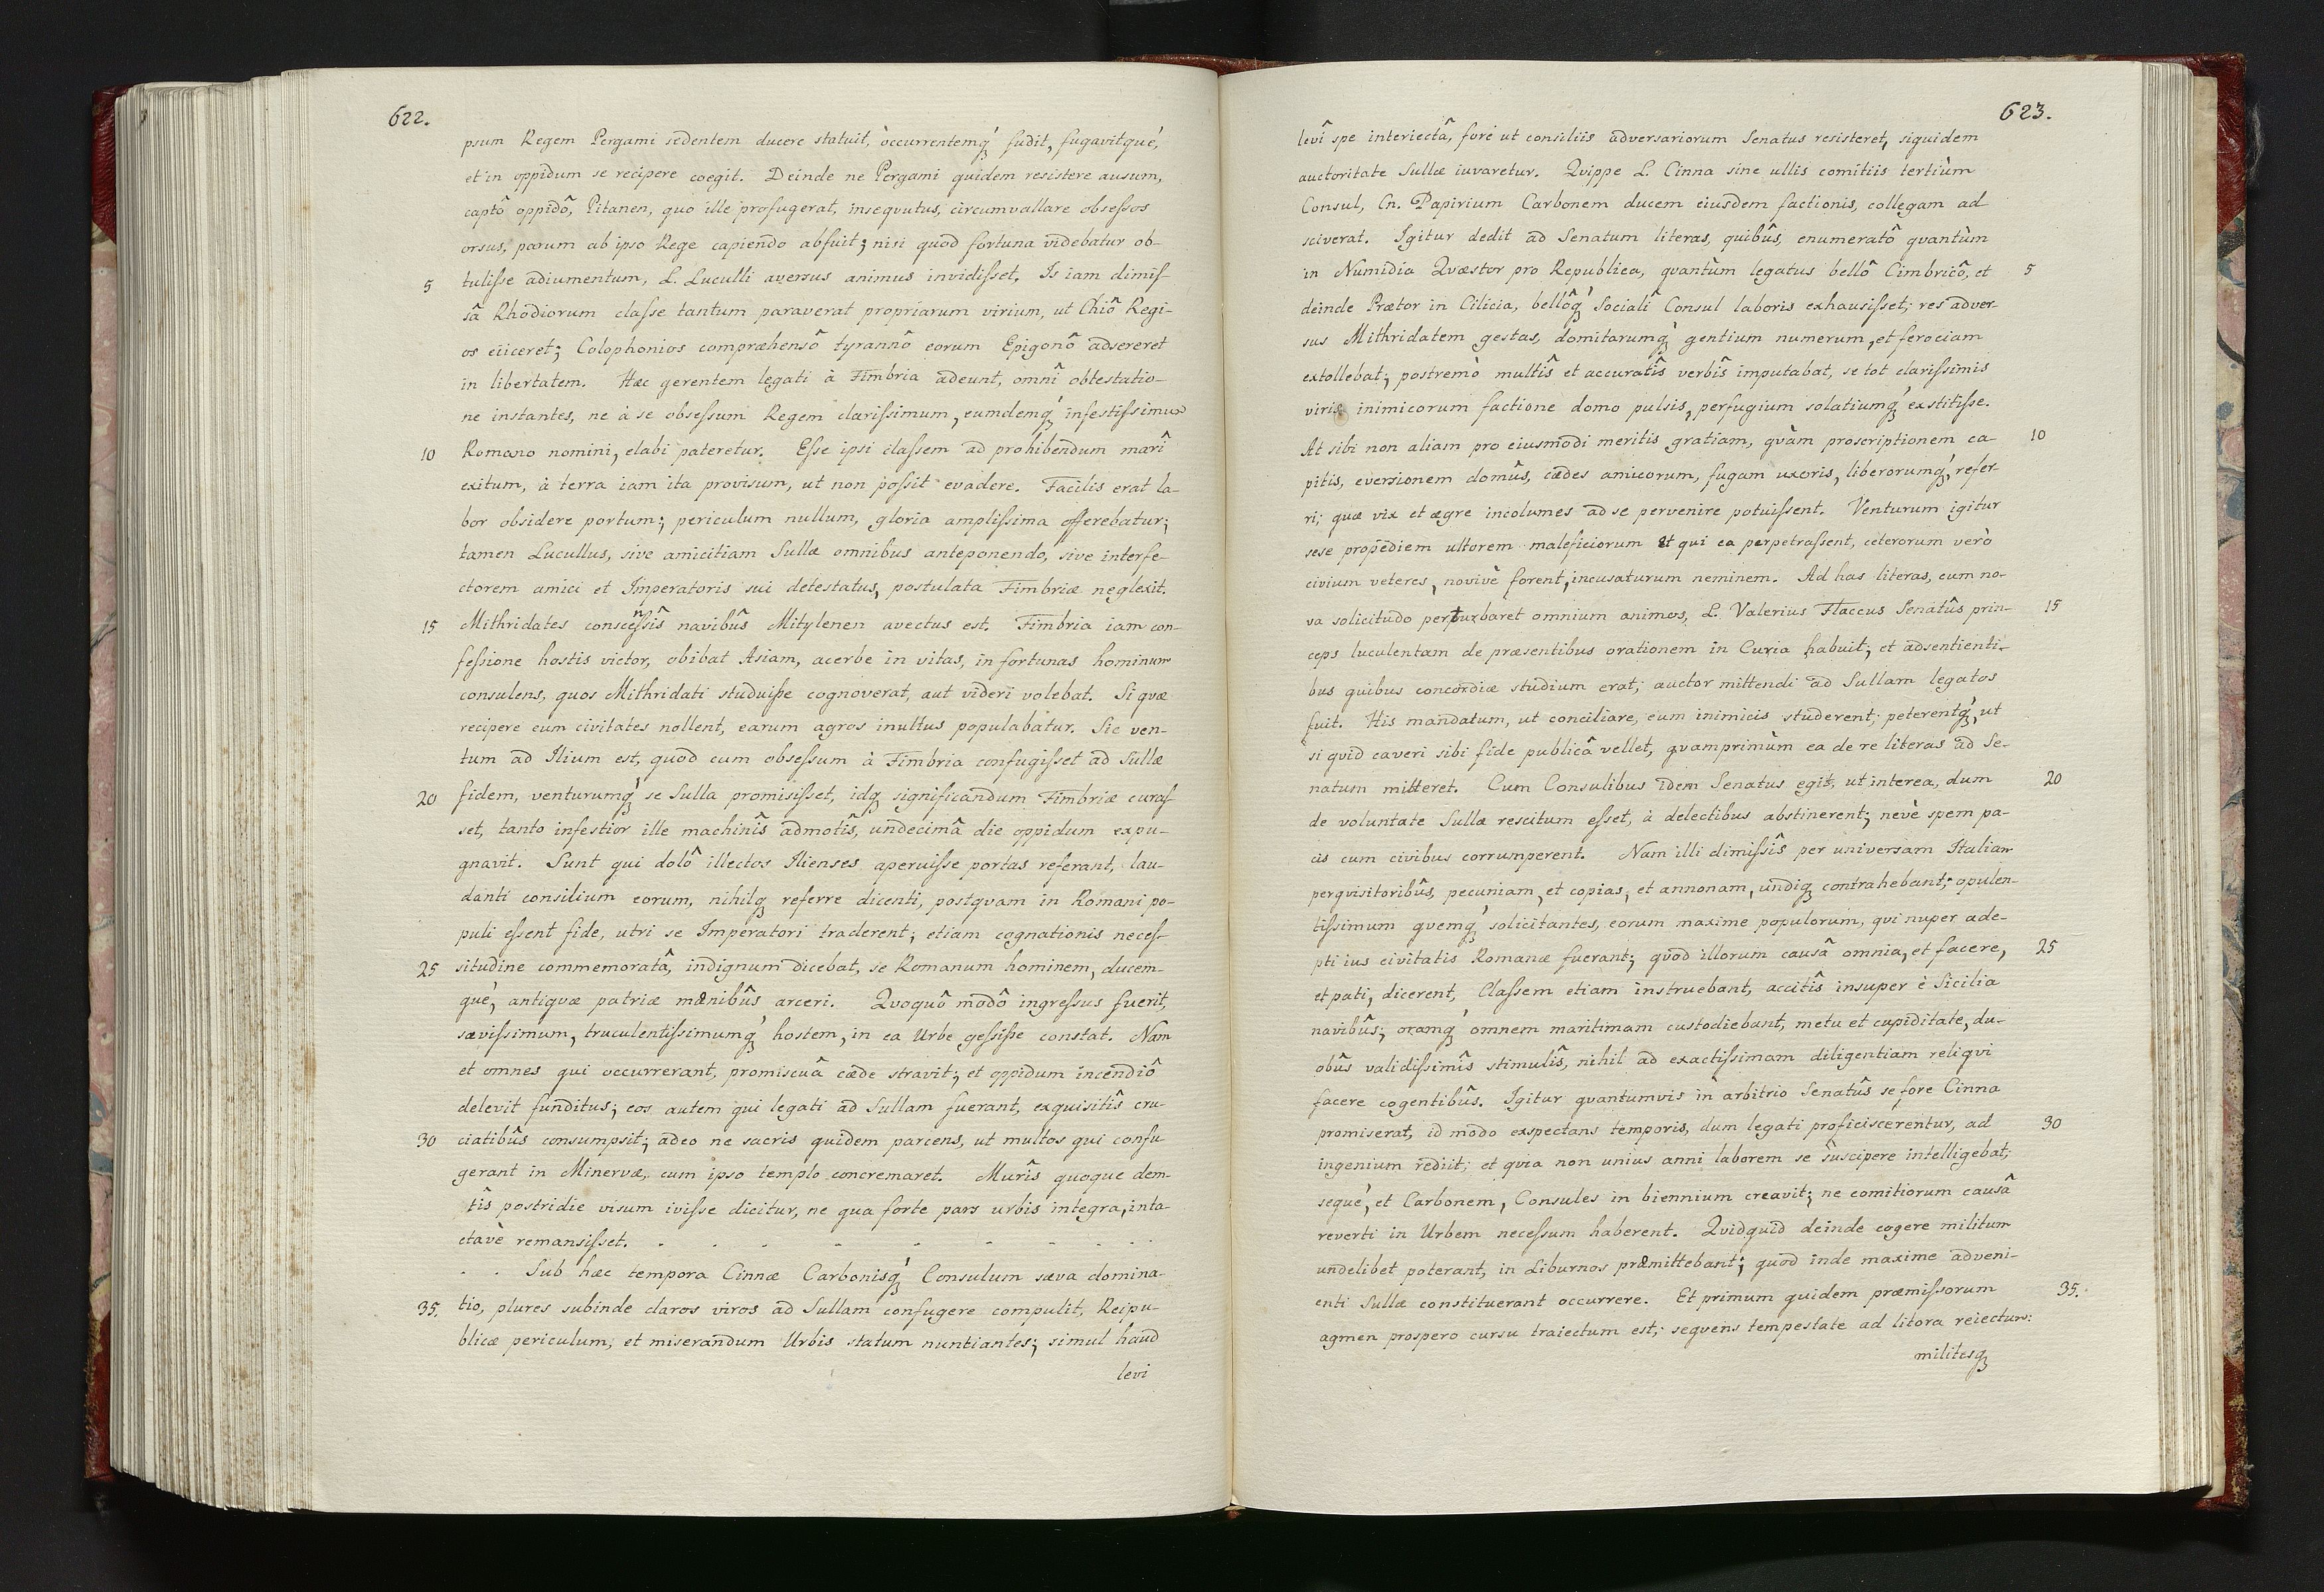 622.
psum Regem Pergami sedentem ducere statuit, occurrentemq́ fudit, fugavitqué,
et in oppidum se recipere coegit. Deinde ne Pergami quidem resistere ausum,
captô oppidô, Pitanen, quo ille profugerat, insequutus, circumvallare obseſsos
orsus, parum ab ipso Rege capiendo abfuit; nisi quod fortuna videbatur ob-
5 tuliſse adiumentum, L. Luculli aversus animus invidiſset. Is iam dimiſ-
sâ Rhodiorum claſse tantum paraverat propriarum virium, ut Chiô Regi-
os eiiceret; Colophonios compræhensô tyrannô eorum Epigonô adsereret
in libertatem. Hæc gerentem legati à Fimbria adeunt, omnî obtestatio-
ne instantes, ne à se obseſsum Regem clariſsimum, eumdemq́ infestiſsimum
10 Romano nomini, elabi pateretur. Eſse ipsi claſsem ad prohibendum marî
exitum, à terra iam ita provisum, ut non poſsit evadere. Facilis erat la-
bor obsidere portum; periculum nullum, gloria ampliſsima offerebatur;
tamen Lucullus, sive amicitiam Sullæ omnibus anteponendo, sive interfe-
ctorem amici et Imperatoris sui detestatus, postulata Fimbriæ neglexit.
15 Mithridates conscenſsîs navibûs Mitylenen avectus est. Fimbria iam con-
feſsione hostis victor, obibat Asiam, acerbe in vitas, in fortunas hominum
consulens, quos Mithridati studuiſse cognoverat, aut videri volebat. Si quæ
recipere eum civitates nollent, earum agros inultus populabatur. Sic ven-
tum ad Ilium est, quod cum obseſsum à Fimbria confugiſset ad Sullæ
20 fidem, venturumq́ se Sulla promisiſset, idq significandum Fimbriæ curaſ-
set, tanto infestior ille machinîs admotîs, undecimâ die oppidum expu-
gnavit. Sunt qui dolô illectos Ilienses aperuiſse portas referant, lau-
danti consilium eorum, nihilq referre dicenti, postquam in Romani po-
puli eſsent fide, utri se Imperatori traderent; etiam cognationis neceſ-
25 situdine commemoratâ, indignum dicebat, se Romanum hominem, ducem-
qué, antiquæ patriæ mœnibûs arceri. Quoquô modô ingreſsus fuerit,
sæviſsimum, truculentiſsimumq́ hostem, in ea Urbe geſsiſse constat. Nam
et omnes qui occurrerant, promiscuâ cæde stravit; et oppidum incendiô
delevit funditus; eos autem qui legati ad Sullam fuerant, exquisitîs cru-
30 ciatibûs consumpsit; adeo ne sacris quidem parcens, ut multos qui confu
gerant in Minervæ, cum ipso templo concremaret. Murîs quoque dem-
tîs postridie visum iviſse dicitur, ne qua forte pars urbis integra, inta-
ctavè remansiſset. . . . . . . . . . .
. . Sub hæc tempora Cinnæ Carbonisq́ Consulum sæva domina-
35. tio, plures subinde claros viros ad Sullam confugere compulit, Reipu-
blicæ periculum, et miserandum Urbis statum nuntiantes; simul haud
levi
623.
levî spe interiectâ, fore ut consiliis adversariorum Senatus resisteret, siquidem
auctoritate Sullæ iuvaretur. Quippe L. Cinna sine ullis comitiis tertiùm
Consul, Cn. Papirium Carbonem ducem eiusdem factionis, collegam ad
sciverat. Igitur dedit ad Senatum literas, quibûs, enumeratô quantùm
in Numidia Quæstor pro Republica, quantùm legatus bellô Cimbricô, et 5
deinde Prætor in Cilicia, bellôq́ Socialî Consul laboris exhausiſset; res adver-
sus Mithridatem gestas, domitarumq́ gentium numerum, et ferociam
extollebat; postremò multîs et accuratîs verbîs imputabat, se tot clariſsimis
viris inimicorum factione domo pulsis, perfugium solatiumq́ exstitiſse.
At sibi non aliam pro eiusmodi meritis gratiam, quàm proscriptionem ca- 10
pitis, eversionem domûs, cædes amicorum, fugam uxoris, liberorumq́, refer-
ri; quæ vix et ægre incolumes ad se pervenire potuiſsent. Venturum igitur
sese propediem ultorem maleficiorum et qui ea perpetraſsent, ceterorum verò
civium veteres, novivè forent, incusaturum neminem. Ad has literas, cum no-
va solicitudo perturbaret omnium animos, L. Valerius Flaccus Senatûs prin- 15
ceps luculentam de præsentibus orationem in Curia habuit; et adsentienti-
bus quibus concordiæ studium erat; auctor mittendi ad Sullam legatos
fuit. His mandatum, ut conciliare, eum inimicis studerent; peterentq́, ut
si quid caveri sibi fide publicâ vellet, quamprimùm ea de re literas ad Se-
natum mitteret. Cum Consulibus idem Senatus egit, ut interea, dum 20
de voluntate Sullæ rescitum eſset, à delectibus abstinerent; nevè spem pa-
cis cum civibus corrumperent. Nam illi dimiſsîs per universam Italiam
perquisitoribûs, pecuniam, et copias, et annonam, undiq contrahebant; opulen-
tiſsimum quemq́ solicitantes, eorum maxime populorum, qui nuper ade-
pti ius civitatis Romanæ fuerant; quod illorum causâ omnia, et facere, 25
et pati, dicerent, Claſsem etiam instruebant, accitîs insuper è Sicilia
navibûs; oramq́ omnem maritimam custodiebant, metu et cupiditate, du-
obûs validiſsimîs stimulîs, nihil ad exactiſsimam diligentiam reliqui
facere cogentibûs. Igitur quantumvis in arbitrio Senatûs se fore Cinna
promiserat, id modo exspectans temporis, dum legati proficiscerentur, ad 30
ingenium rediit; et quia non unius anni laborem se suscipere intelligebat;
sequé, et Carbonem, Consules in biennium creavit; ne comitiorum causâ
reverti in Urbem neceſsum haberent. Quidquid deinde cogere militum
undelibet poterant, in Liburnos præmittebant; quod inde maxime adveni-
enti Sullæ constituerant occurrere. Et primum quidem præmiſsorum 35.
agmen prospero cursu traiectum est; sequens tempestate ad litora reiectum:
militesq